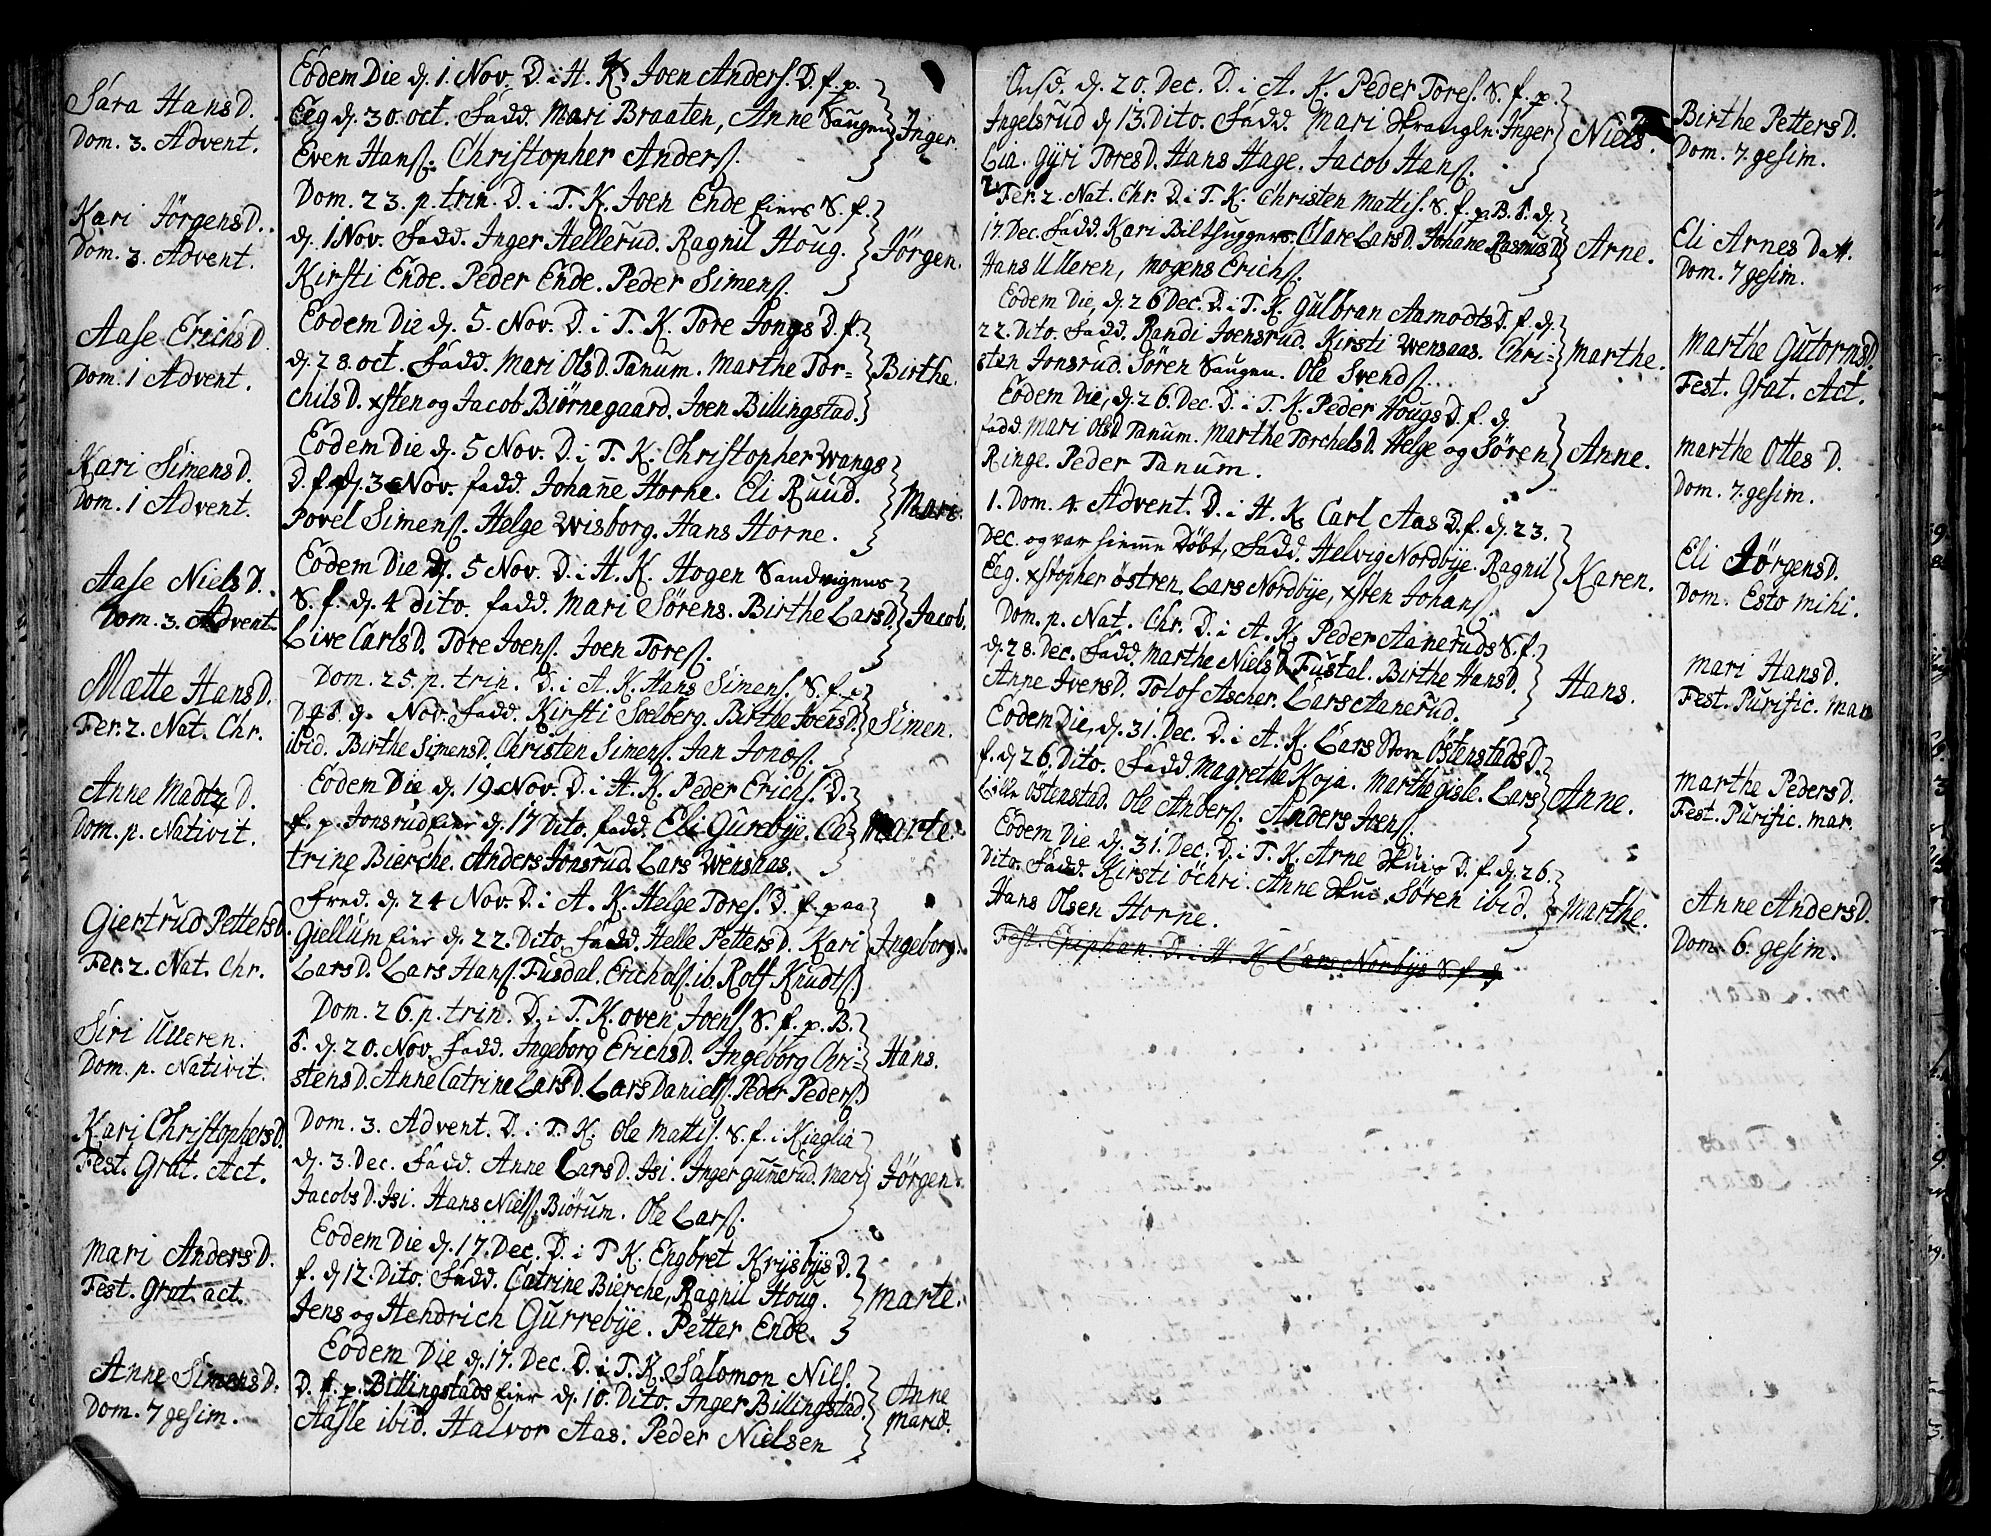 Sara Hans D.
Dom. 3. Advent.
Kari Jörgens D.
Dom. 3. Advent.
Aase Erichs D.
Dom. 1 Advent.
Kari Simens D.
Dom. 1 Advent.
Aase Niels D.
Dom. 3. Advent.
Mætte Hans D.
Fer. 2. Nat. Chr.
Anne Madtz D.
Dom. p. Nativit.
Giertrud Petters D.
Fer. 2. Nat. Chr.
Siri Ulleren.
Dom. p. Nativit.
Kari Christophers D.
Fest. Grat. Act.
Mari Anders D.
Fest. Grat. act.
Anne Simens D.
Dom. 7 gesim.
Eodem Die d. 1. Nov. D. i H. K. Joen Anders. D. f. p.
Eeg d. 30. oct. Fadd. Mari Braaten, Anne Saugen
Even Hans. Christopher Anders.
Inger.
Dom. 23. p. trin. D. i T. K. Joen Ende eiers S. f.
d. 1 Nov. Fadd. Inger Hellerud. Ragnil Houg.
Kirsti Ende. Peder Ende. Peder Simens.
Jörgen.
Eodem Die d. 5. Nov. D. i T. K. Tore Jongs D. f.
d. 28. oct. Fadd. Mari Ols D. Tanum. Marthe Tor-
chils D. xsten og Jacob Biörnegaard. Joen Billingstad.
Birthe.
Eodem Die d. 5 Nov. D. i T. K. Christopher Wangs
D. f. d. 3 Nov. fadd. Johanne Horne. Eli Ruud.
Povel Simens. Helge Wisborg. Hans Horne.
Mari.
Eodem Die d. 5 Nov. D. i H. K. Hogen Sandvigens
S. f. d. 4 dito. fadd. Mari Sörens. Birthe Lars D.
Live Carls D. Tore Joens. Joen Tores.
Jacob.
Dom. 25. p. trin. D. i A. K. Hans Simens. S. f. p
Nov. Fadd. Kirsti Soelberg. Birthe Joens D.
ibid. Birthe Simens D. Christen Simens. Jan Jonæs.
Simen.
Eodem Die d. 19 Nov. D. i H. K. Peder Erichs. D.
f. p. Jonsrud eier d. 17 Dito. fadd. Eli Gurebye. Ca-
trine Bierche. Anders Jonsrud. Lars Wensaas.
Marte.
Fred. d. 24 Nov. D. i A. K. Helge Tores. D. f. paa
Giellum eier d. 22. Dito. Fadd. Helle Petters D. Kari
Lars D. Lars Hans. Fusdal. Erich Ols. ib. Rolf Knudts.
Ingeborg.
Dom. 26. p. trin. D. i T. K. oven Joens S. f. p. B.
S. d. 20. Nov. Fadd. Ingeborg Erichs D. Ingeborg Chri-
stens D. Anne Catrine Lars D. Lars Daniels. Peder Peders.
Hans.
Dom. 3. Advent. D. i T. K. Ole Mattis. S. f. i Kiaglia
d. 3. Dec. Fadd. Anne Lars D. Isi. Inger Gumerud. Mari
Jacobs D. Isi. Hans Niels. Biörum. Ole Lars.
Jörgen.
Eodem Die d. 17. Dec. D. i T K. Engbret Krysbys D.
f. d 12. Dito. Fadd. Catrine Bierche, Ragnil Houg.
Jens og Hendrich Gurrebye. Petter Ende.
Marte.
Eodem Die d. 17. Dec. D. i T. K. Salomon Nils.
D. f. p. Billingstads eier d. 10. Dito. Inger Billingstad.
Aasle ibid. Halvor Aas. Peder Nielsen
Anne
Marie.
Onsd. d. 20. Dec. D. i A. K. Peder Tores. S. f. p.
Ingelsrud d 13. Dito. Fadd. Mari Inger
Lia. Gyri Tores D. Hans Hage. Jacob Hans.
Niels.
Fer. 2. Nat. Chr. D. i T. K. Christen Mattis. S. f. p. B. S. d.
17. Dec. Fadd. Kari Bilthuggers. Clare Lars D. Johane Rasmus D
Hans Ulleren, Mogens Erichs.
Arne.
Eodem Die, d. 26 Dec. D. i T. K. Gulbran Aamodts D. f. d.
22. Dito. Fadd. Randi Joensrud. Kirsti Wensaas. Chri-
sten Jonsrud. Sören Saugen. Ole Svends.
Marthe.
Eodem Die, d. 26. Dec. D. i T. K. Peder Hougs D. f. d.
fadd. Mari Ols D Tanum. Marthe Torchels D. Helge og Sören
Ringe. Peder Tanum.
Anne.
1. Dom. 4. Advent. D. i H. K. Carl Aas D. f. d. 23.
Dec. og var hiemme Döbt, Fadd. Helvig Nordbye. Ragnil
Eeg. xstopher östren. Lars Nordbye, xsten Johans.
Karen.
Dom. p. Nat. Chr. D. i A. K. Peder Aaneruds S. f.
d. 28. Dec. Fadd. Marthe Niels D. Fustal. Birthe Hans D.
Anne Ivers D. Tolof Ascher. Lars Aanerud.
Hans.
Eodem Die, d. 31. Dec. D. i A. K. Lars Store Östenstads D.
f. d 26. Dito. Fadd. Magrethe Koja. Marthe Gisle. Lars
Lille Östenstad. Ole Anders. Anders Joens.
Anne.
Eodem Die d. 31. Dec. D. i T. K. Arne Skuis D. f. d. 26.
Dito. Fadd. Kirsti öchri. Anne Skui. Sören ibid.
Hans Olsen Horne.
Marthe.
Fest. Epiphan. D. i H. K Lars Norbys S. f. d
Birthe Petters D.
Dom. 7. gesim.
Eli Arnes Datt.
Dom. 7 gesim.
Marthe Gutorms D.
Fest. Grat. Act.
Marthe Ottes D.
Dom. 7. gesim.
Eli Jörgens D.
Dom. Esto mihi.
Mari Hans D.
Fest. Purific. Mar
Marthe Peders D.
Fest. Purific. Mar.
Anne Anders D.
Dom. 6. gesim.